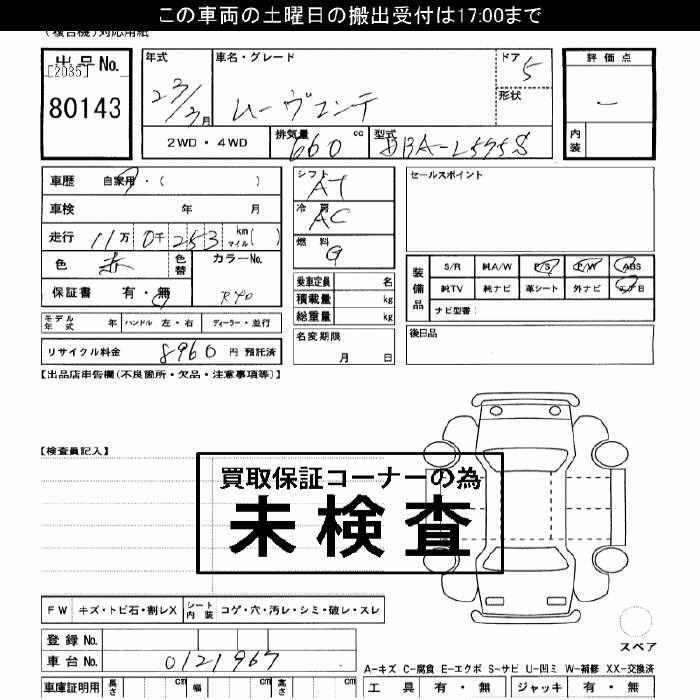 この車両の土曜日の搬出受付は17:00まで
(複合機)対応用紙
出品No.
[2035]
80143
年式
23/3月
車名・グレード
ムーヴコンテ
ドア
5
形状
評価点
―
内装
2WD・4WD
排気量
660
cc
型式
DBA-L575S
車歴 自家用・( )
車検 年 月
走行 11万 0千 253 km マイル( )
色 赤
色替
カラーNo.
R40
保証書 有・無
シフト
AT
冷房
AC
燃料
G
乗車定員 名
積載量 kg
総重量 kg
名変期限
月 日
セールスポイント
装備品
S/R 純A/W P/S P/W ABS
純TV 純ナビ 革シート 外ナビ エアB
ナビ型番:
後日品
モデル年式 年 ハンドル 左・右 ディーラー・並行
リサイクル料金 8960 円 預託済
【出品店申告欄(不良箇所・欠品・注意事項等)】
【検査員記入】
買取保証コーナーの為
未検査
FW キズ・トビ石・割レX シート内装 コゲ・穴・汚レ・シミ・破レ・スレ
スペア
登録No.
車台No. 0121967
A-キズ C-腐食 E-エクボ S-サビ U-凹ミ W-補修 XX-交換済
車庫証明用 長さ cm 幅 cm 高さ cm
工具 有・無 ジャッキ 有・無